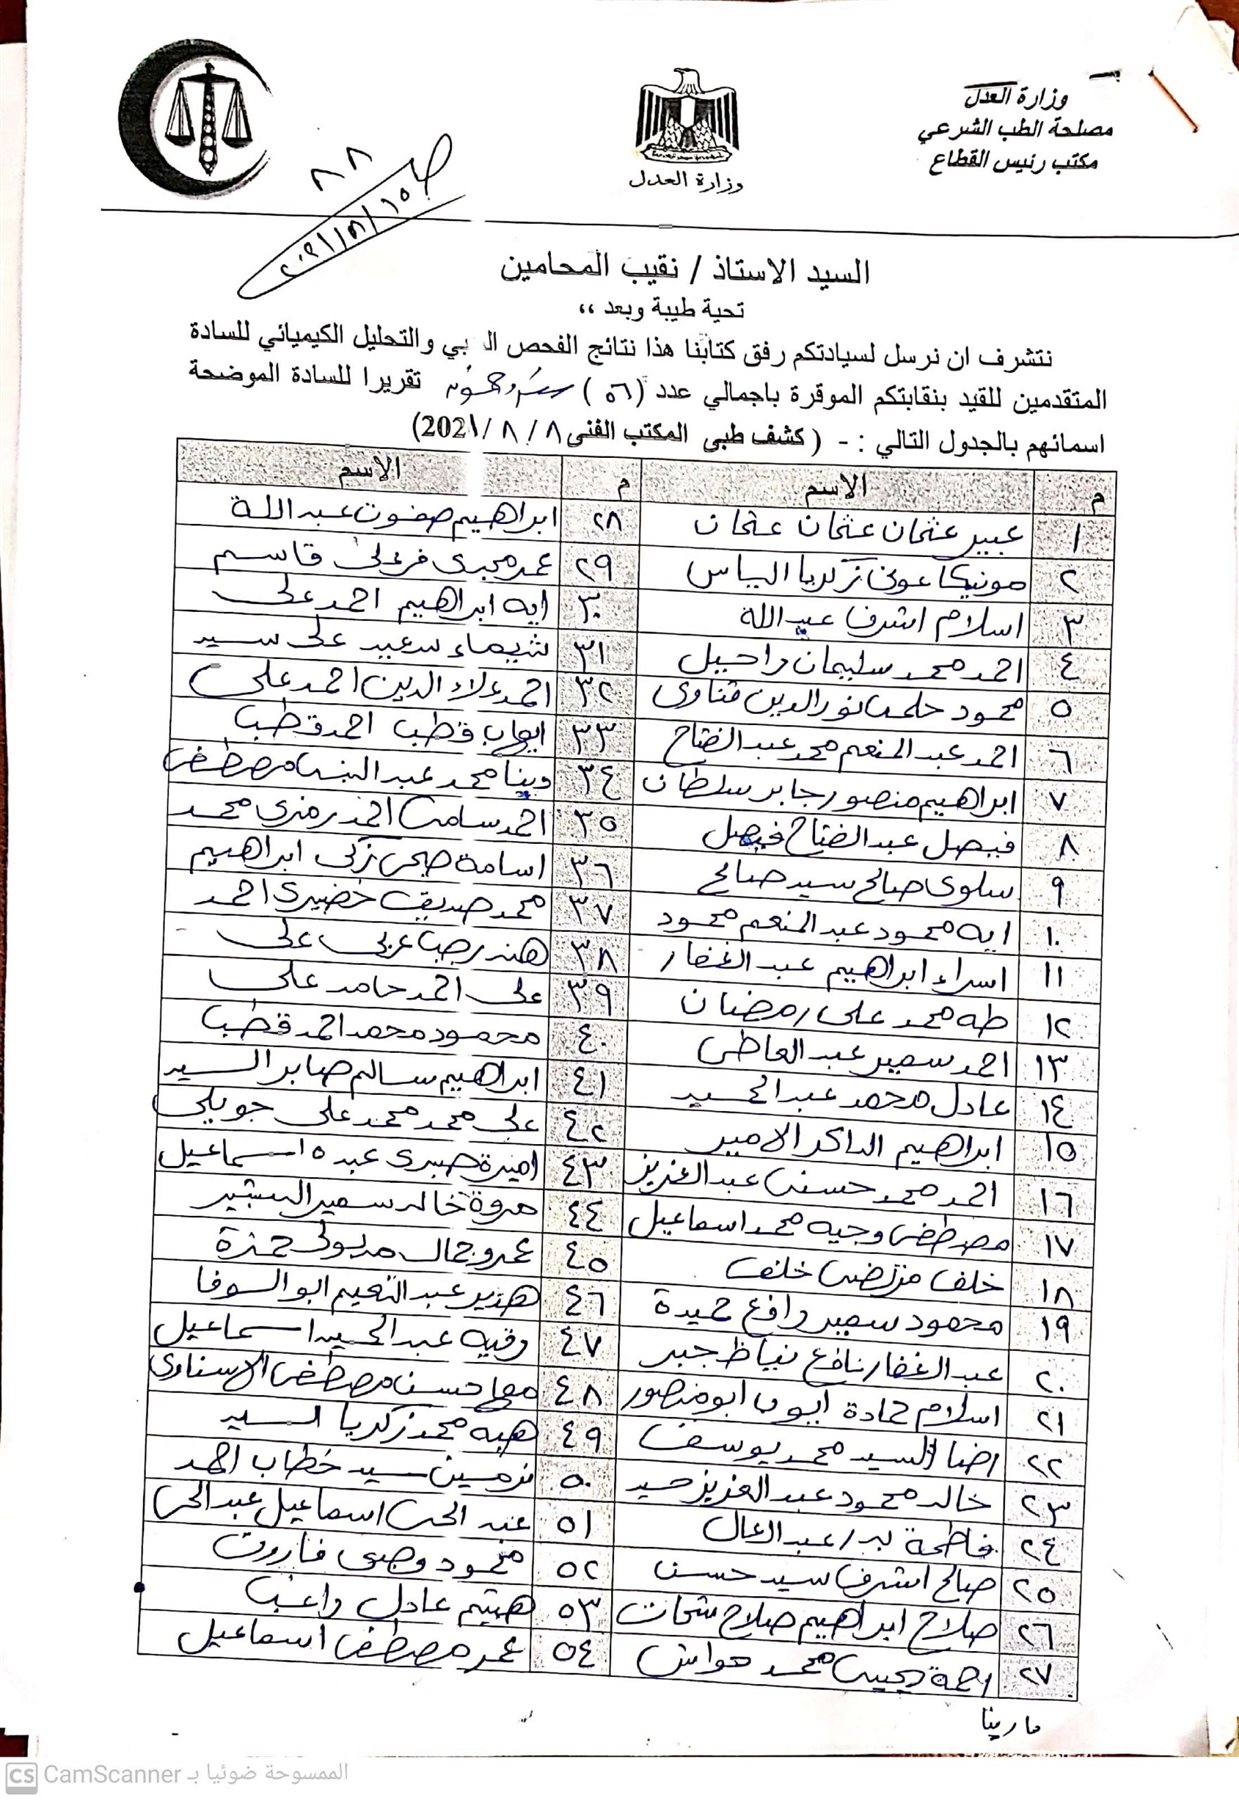 وزارة العدل
مصلحة الطب الشرعي
مكتب رئيس القطاع
وزارة العدل
٨٨
السيد الاستاذ / نقيب المحامين
تحية طيبة وبعد ،،
نتشرف ان نرسل لسيادتكم رفق كتابنا هذا نتائج الفحص ال بي والتحليل الكيميائي للسادة
المتقدمين للقيد بنقابتكم الموقرة باجمالي عدد (٥٦) تقريرا للسادة الموضحة
اسمائهم بالجدول التالي : - ( كشف طبى المكتب الفنى ٨ / ٨ / 2021)
م الاسم م الاسم
١ عبير عثمان عثمان عثمان ٢٨ ابراهيم صفوت عبد اللة
٢ مونيكا عونى زكريا الياس ٢٩ عمر مجدى فرغلى قاسم
٣ اسلام اشرف عبد الله ٣٠ ايه ابراهيم احمد على
٤ احمد محمد سليمان راحيل ٣١ شيماء سعيد على سيد
٥ محمود حلمى نور الدين قناوى ٣٢ احمد علاء الدين احمد على
٦ احمد عبد المنعم محمد عبد الفتاح ٣٣ ايهاب قطب احمد قطب
٧ ابراهيم منصور جابر سلطان ٣٤ دينا محمد عبد النبى مصطفى
٨ فيصل عبد الفتاح فيصل ٣٥ احمد سامى احمد رمزى محمد
٩ سلوى صالح سيد صالح ٣٦ اسامة صبحى زكى ابراهيم
١٠ ايه محمود عبد المنعم محمود ٣٧ محمد صديق خضيرى احمد
١١ اسراء ابراهيم عبد الغفار ٣٨ هند رجب عربى على
١٢ طه محمد على رمضان ٣٩ على احمد حامد على
١٣ احمد سمير عبد العاطى ٤٠ محمود محمد احمد قطب
١٤ عادل محمد عبد الحميد ٤١ ابراهيم سالم صابر السيد
١٥ ابراهيم الامير ٤٢ على محمد محمد على جويلى
١٦ احمد محمد حسنى عبد العزيز ٤٣ اميرة صبرى عبده اسماعيل
١٧ مصطفى وجيه محمد اسماعيل ٤٤ مروة خالد سمير البشير
١٨ خلف مرتضى خلف ٤٥ عمرو جمال مدبولى حمزة
١٩ محمود سمير رافع حميدة ٤٦ هدير عبد النعيم ابو الوفا
٢٠ عبد الغفار نافع جبر ٤٧ رقيه عبد الحميد اسماعيل
٢١ اسلام حمادة ايوب ابو منصور ٤٨ مها حسن مصطفى الاسناوى
٢٢ رضا السيد محمد يوسف ٤٩ هبه محمد زكريا السيد
٢٣ خالد محمود عبد العزيز سيد ٥٠ نرمين سيد خطاب احمد
٢٤ فاطمة بدر عبد العال ٥١ عبد الحى اسماعيل عبد الحى
٢٥ صالح اشرف سيد حسن ٥٢ محمود وصفى فاروق
٢٦ صلاح ابراهيم صلاح شحات ٥٣ هيثم عادل راغب
٢٧ رحمة محمد هواش ٥٤ عمر مصطفى اسماعيل
مارينا
CS CamScanner الممسوحة ضوئيا بـ